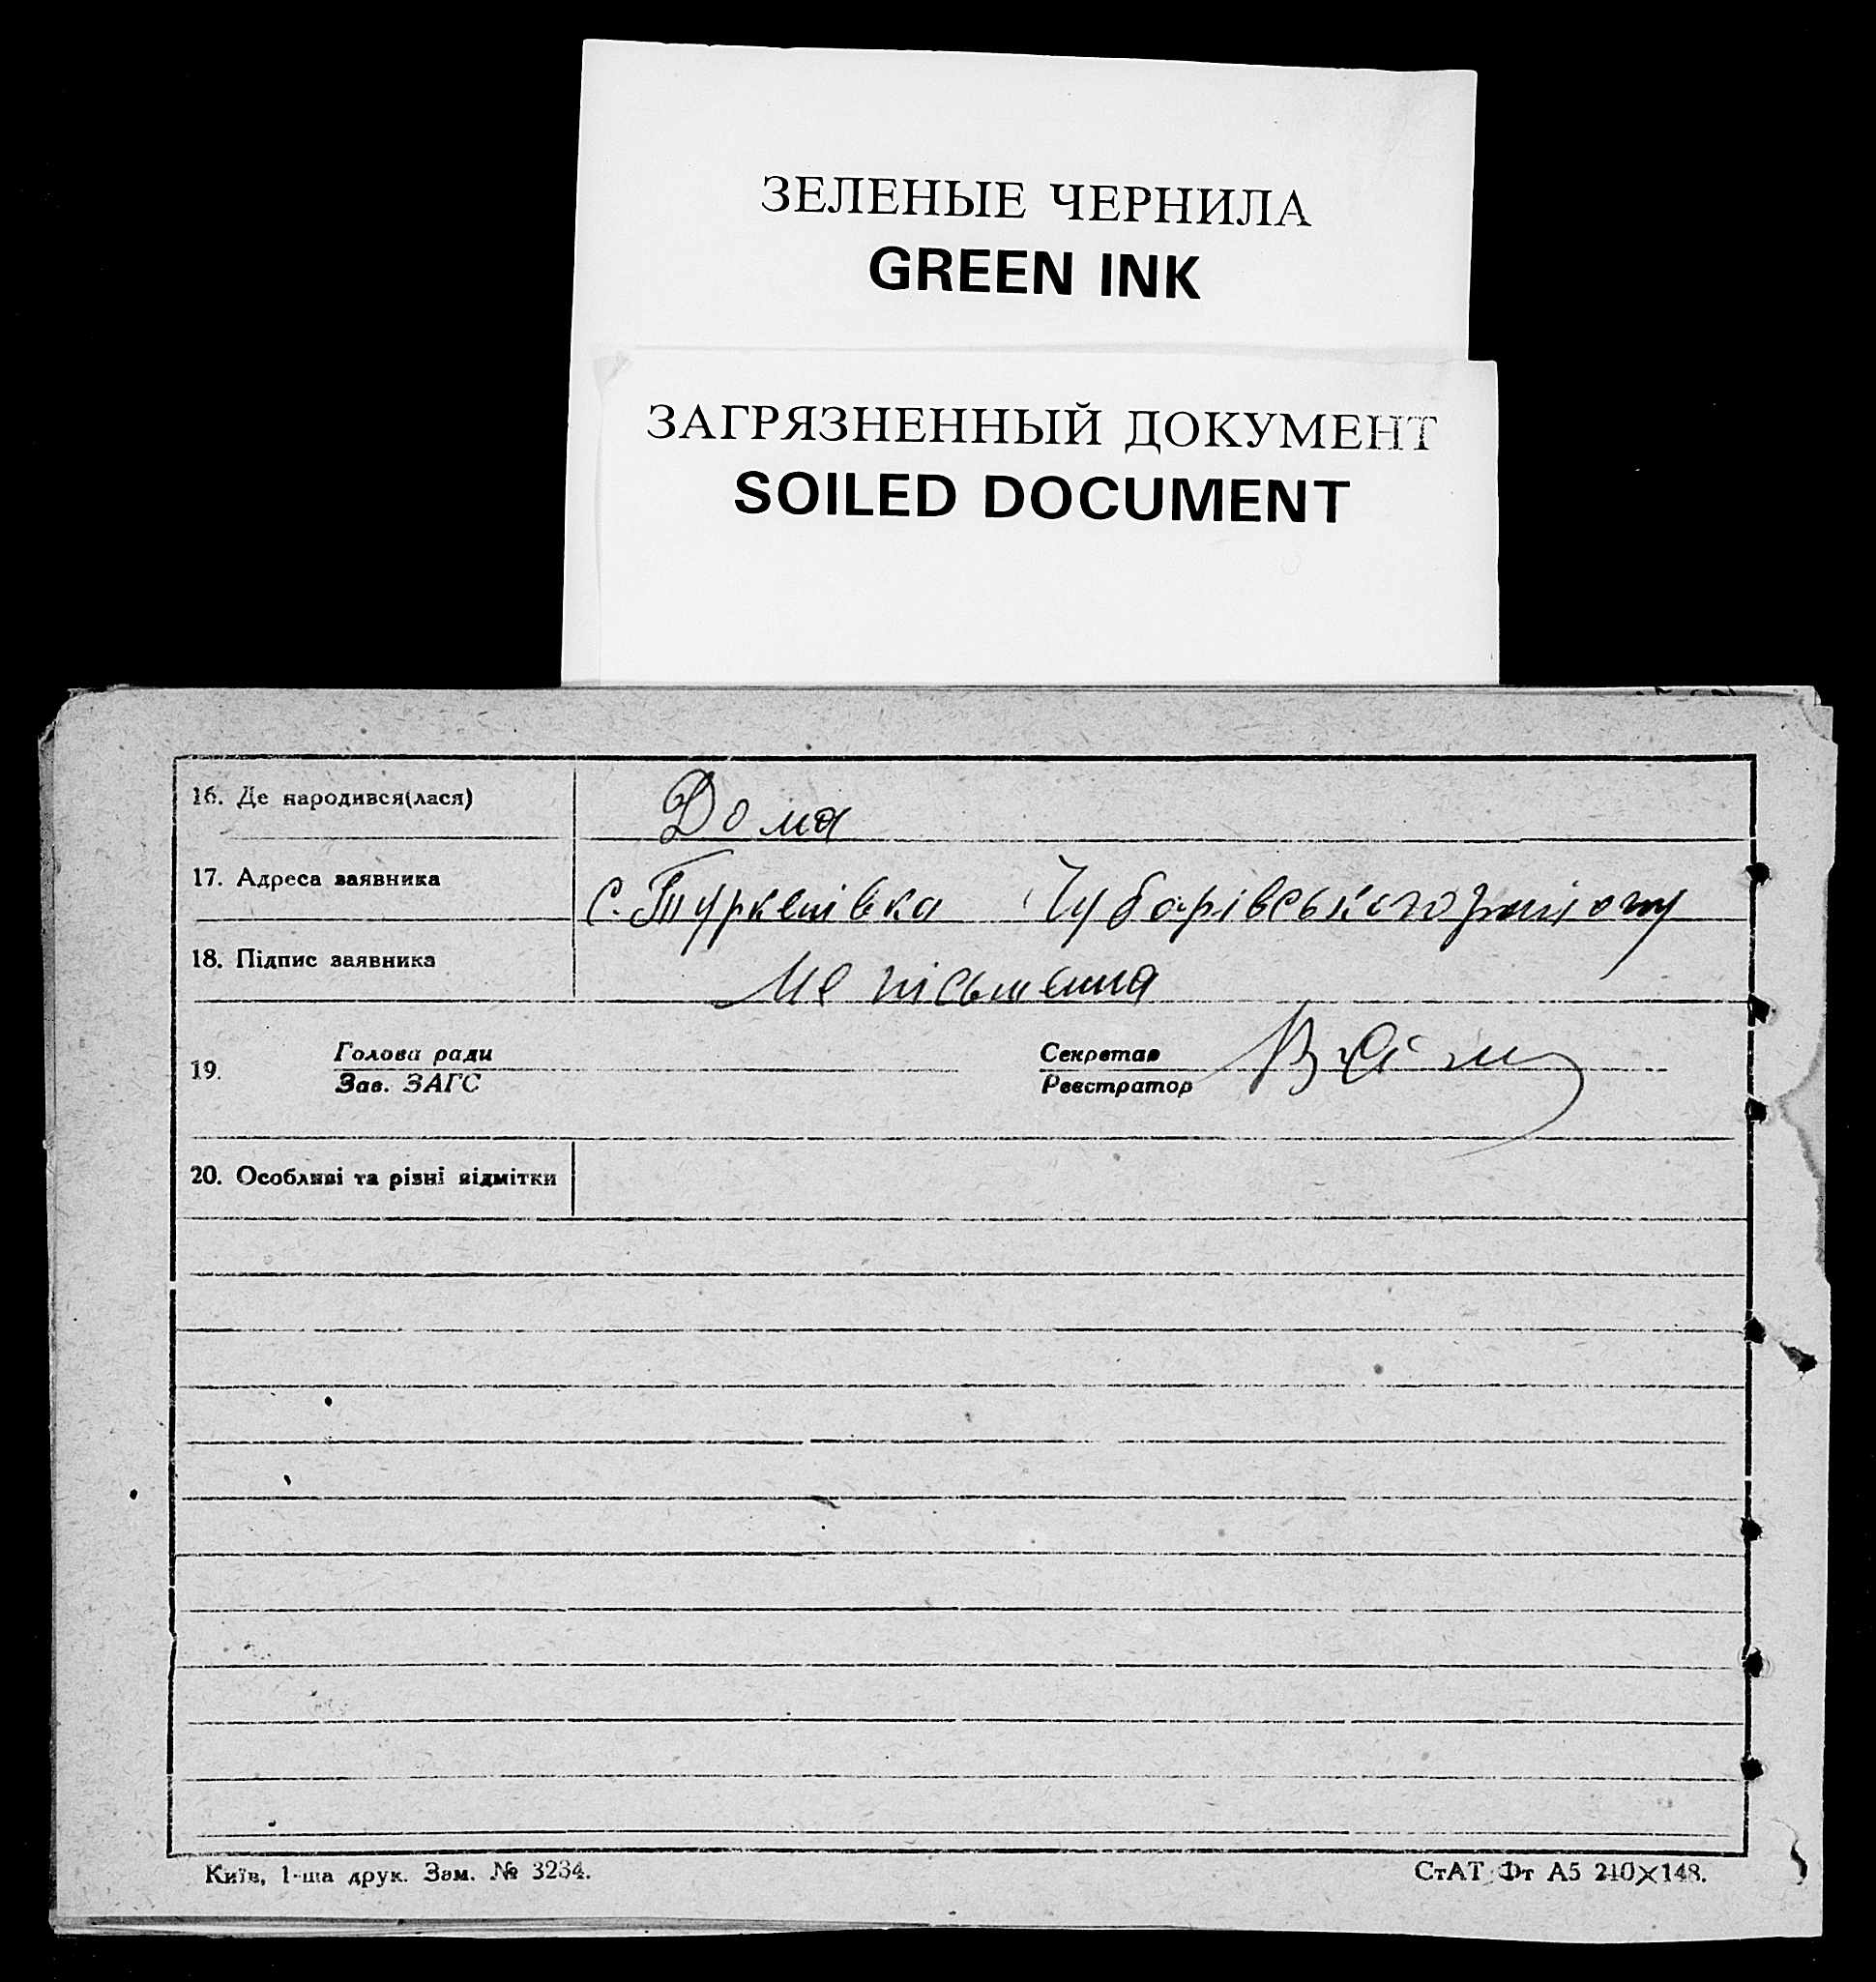 ЗЕЛЕНЫЕ ЧЕРНИЛА
GREEN INK
ЗАГРЯЗНЕННЫЙ ДОКУМЕНТ
SOILED DOCUMENT
16. Де народився(лася) Дома
17. Адреса заявника с. Туркенівка Чубарівського району
18. Підпис заявника Не письменна
19. Голова ради Секретар
Зав. ЗАГС Реєстратор
20. Особливі та різні відмітки
Київ, 1-ша друк. Зам. № 3234. СтАТ Фт А5 210×148.